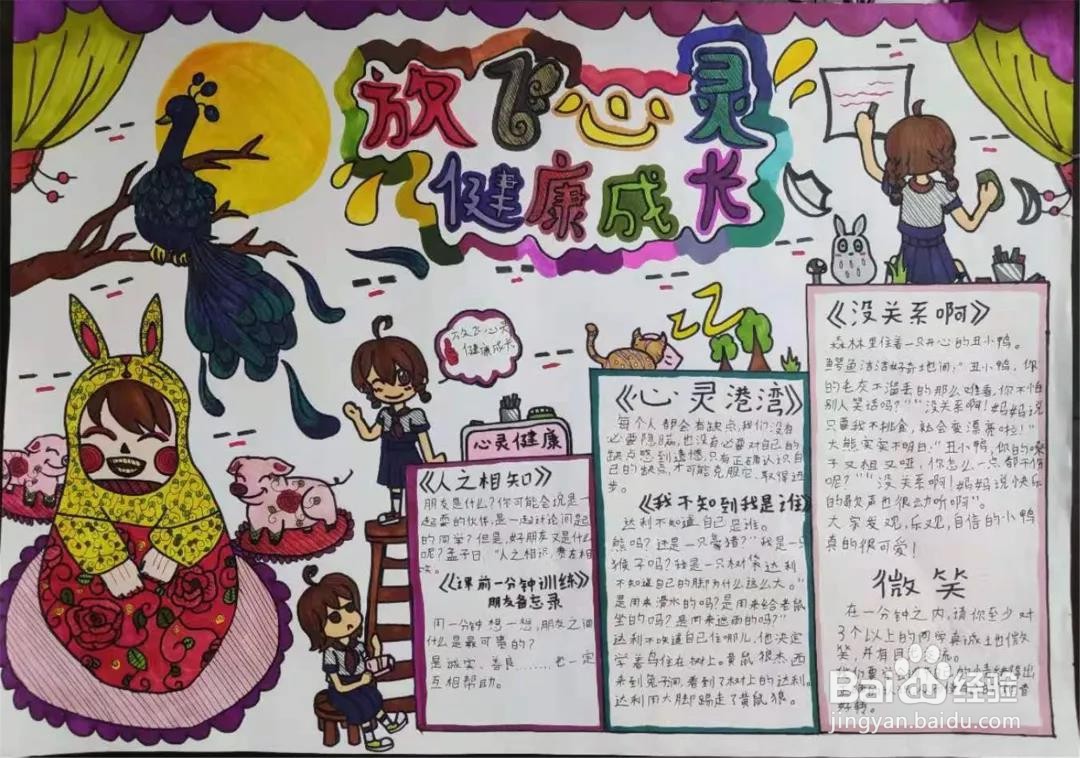 放飞心灵
健康成长
放飞心灵
健康成长
心灵健康
《人之相知》
朋友是什么?你可能会说是一
起耍的伙伴,是一起讨论问题
的同学?但是,好朋友又是什么
呢?孟子曰:“人之相识,贵在相
《课前一分钟训练》
朋友备忘录
用一分钟想一想,朋友之间
什么是最可贵的?
是诚实、善良………也一定
互相帮助。
《心灵港湾》
每个人都会有缺点,我们没有
必要隐瞒,也没有必要对自己的
缺点感到遗憾,只有正确认识自
己的缺点,才可能克服它,取得进
步。
《我不知到我是谁》
达利不知道自己是谁。
熊吗?还是一只豪猪?”我是一只
猴子吗?我是一只树袋 达利
不知道自己的脚为什么这么大。”
是用来滑水的吗?是用来给老鼠
坐的吗?是用来遮雨的吗?”
达利不知道自己住哪儿,他决定
学着鸟住在树上。黄鼠狼杰西
来到兔子洞,看到了树上的达利。
达利用大脚踢走了黄鼠狼。
《没关系啊》
森林里住着一只开心的丑小鸭。
鳄鱼洁洁好奇地问:“丑小鸭,你
的毛灰不溜丢的那么难看,你不怕
别人笑话吗?”“没关系啊!妈妈说
只要我不挑食,就会变漂亮啦!”
大熊实实不明白:“丑小鸭,你的嗓
子又粗又哑,你怎么一点都不伤
呢?”“没关系啊!妈妈说快乐
的歌声也很动听啊”。
大家发现,乐观,自信的小鸭
真的很可爱!
微笑
在一分钟之内,请你至少对
3个以上的同学真诚地微
笑,并有目 流。
好转。
Baidu 经验
jingyan.baidu.com